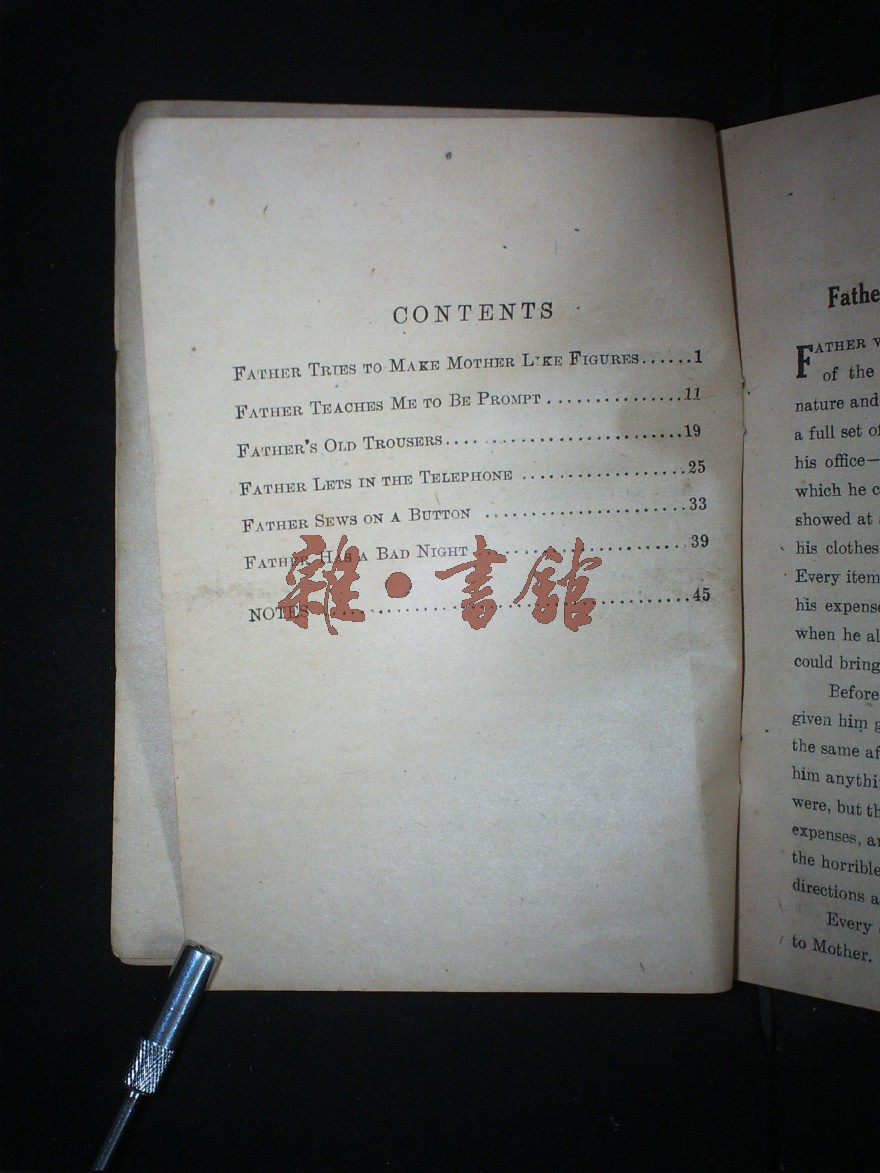 CONTENTS
FATHER TRIES TO MAKE MOTHER LIKE FIGURES......1
FATHER TEACHES ME TO BE PROMPT...............11
FATHER'S OLD TROUSERS..........................19
FATHER LETS IN THE TELEPHONE ..................25
FATHER SEWS ON A BUTTON .......................33
FATHER HAS A BAD NIGHT ........................39
NOTES ..........................................45
雜•書館
Fathe
FATHER
of the
nature and
a full set of
his office—
which he c
showed at
his clothes
Every item
his expense
when he al
could bring
Before
given him g
the same af
him anythi
were, but th
expenses, a
the horrible
directions a
Every
to Mother.